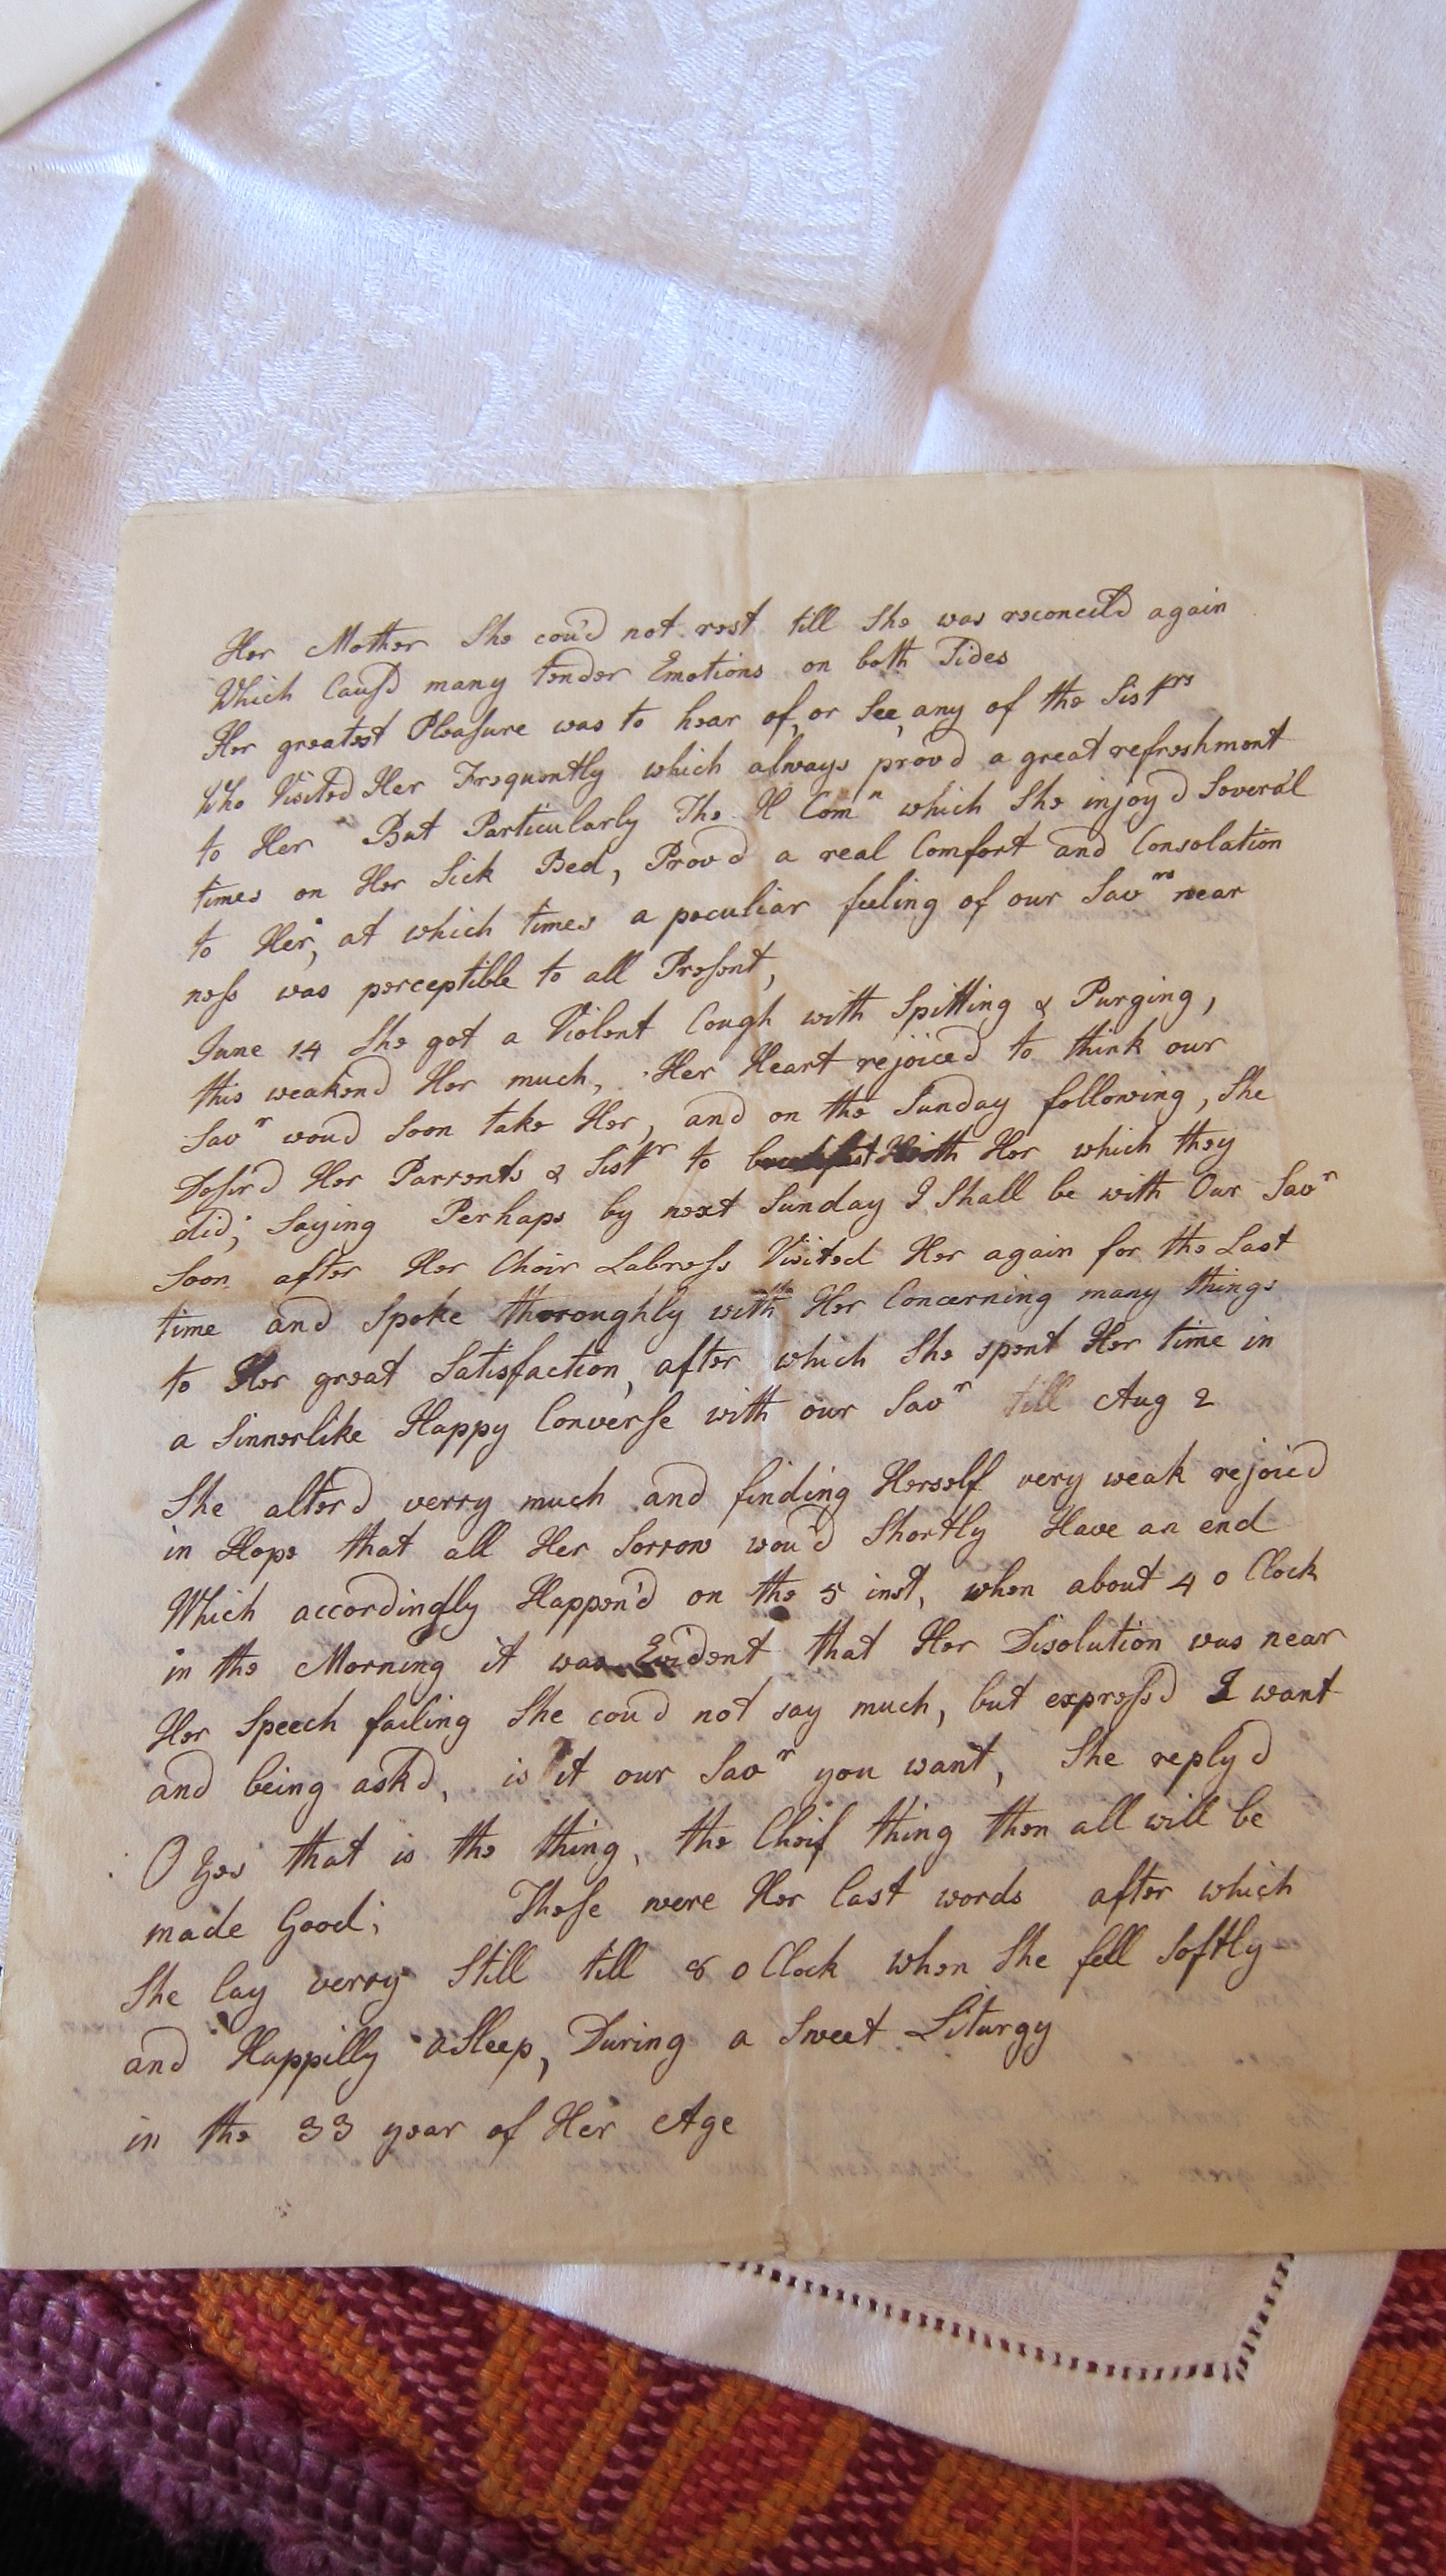 Her Mother She cou'd not rest till She was reconcil'd again
Which Caus'd many tender Emotions on both Sides
Her greatest Pleasure was to hear of, or See, any of the Sistrs
Who Visited Her Frequently which always prov'd a great refreshment
to Her But Particularly The H Comn which She injoy'd Several
times on Her Sick Bed, Prov'd a real Comfort and Consolation
to Her, at which times a peculiar feeling of our Savrs near
ness was perceptible to all Present,
June 14 She got a Violent Cough with Spitting & Purging,
this weakend Her much, Her Heart rejoiced to think our
Savr woud Soon take Her, and on the Sunday following, She
Desir'd Her Parrents & Sistr to breakfast With Her which they
did; Saying Perhaps by next Sunday I Shall be with Our Savr
Soon after Her Choir Labress Visited Her again for the Last
time and Spoke thoroughly with Her Concerning many things
to Her great Satisfaction, after which She spent Her time in
a Sinnerlike Happy Converse with our Savr till Aug 2
She alter'd verry much and finding Herself very weak rejoic'd
in Hope that all Her Sorrow wou'd Shortly Have an end
Which accordingly Happen'd on the 5 inst, when about 4 o Clock
in the Morning it was Evident that Her Disolution was near
Her Speech failing She cou'd not say much, but express'd I want
and being ask'd, is it our Savr you want, She reply'd
O Yes that is the thing, the Cheif thing then all will be
made Good; These were Her last words after which
She lay verry Still till 8 o Clock when She fell Softly
and Happilly aSleep, During a Sweet Liturgy
in the 33 year of Her Age